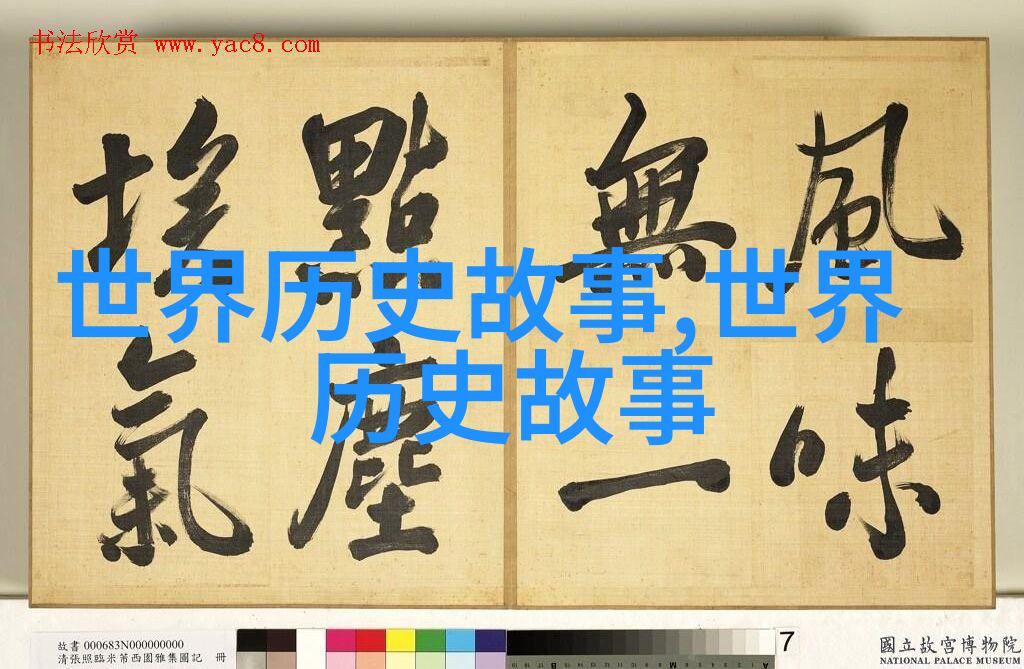 书法欣赏 www.yac8.com
風味
無一
點塵
埃氣
世界历史故事,世界
历史故事
故書 000683N000000000
清張照臨米芾西園雅集圖記 冊
7
國立故宮博物院
NATIONAL PALACE MUSEUM